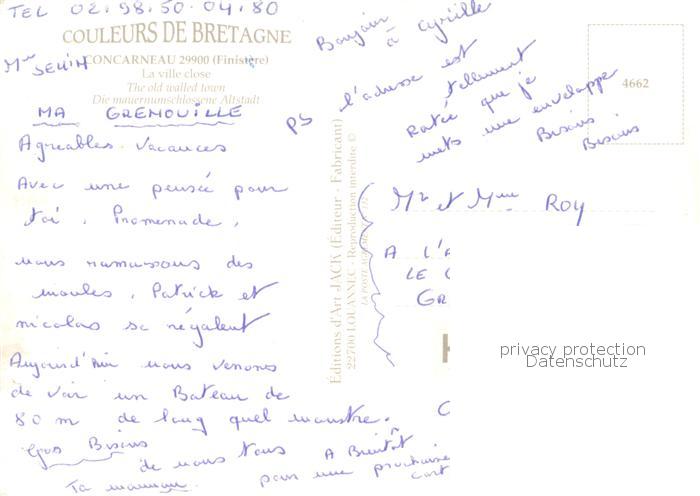 TEL 02.98.50.04.80
COULEURS DE BRETAGNE
CONCARNEAU 29900 (Finistère)
La ville close
The old walled town
Die mauernumschlossene Altstadt
MA GRENOUILLE
Agreables Vacances
Avec une pensée pour
toi. Promenade,
nous ramassons des
moules, Patrick et
nicolas se régalent
Aujourd'hui nous venons
de voir un Bateau de
80 m de long quel monstre.
Gros Bisous
de nous tous
Ta maman.
A Bientôt
pour une prochaine
cart
Editions d'Art JACK (Editeur - Fabricant)
22700 LOUANNEC - Reproduction interdite ©
Bonjour
à Cyrille
PS l'adresse est
tellement
Ratée que je
mets une enveloppe
Bisous
Bisous
4662
Mr et Mme ROY
A L'A
LE C
GR
privacy protection
Datenschutz